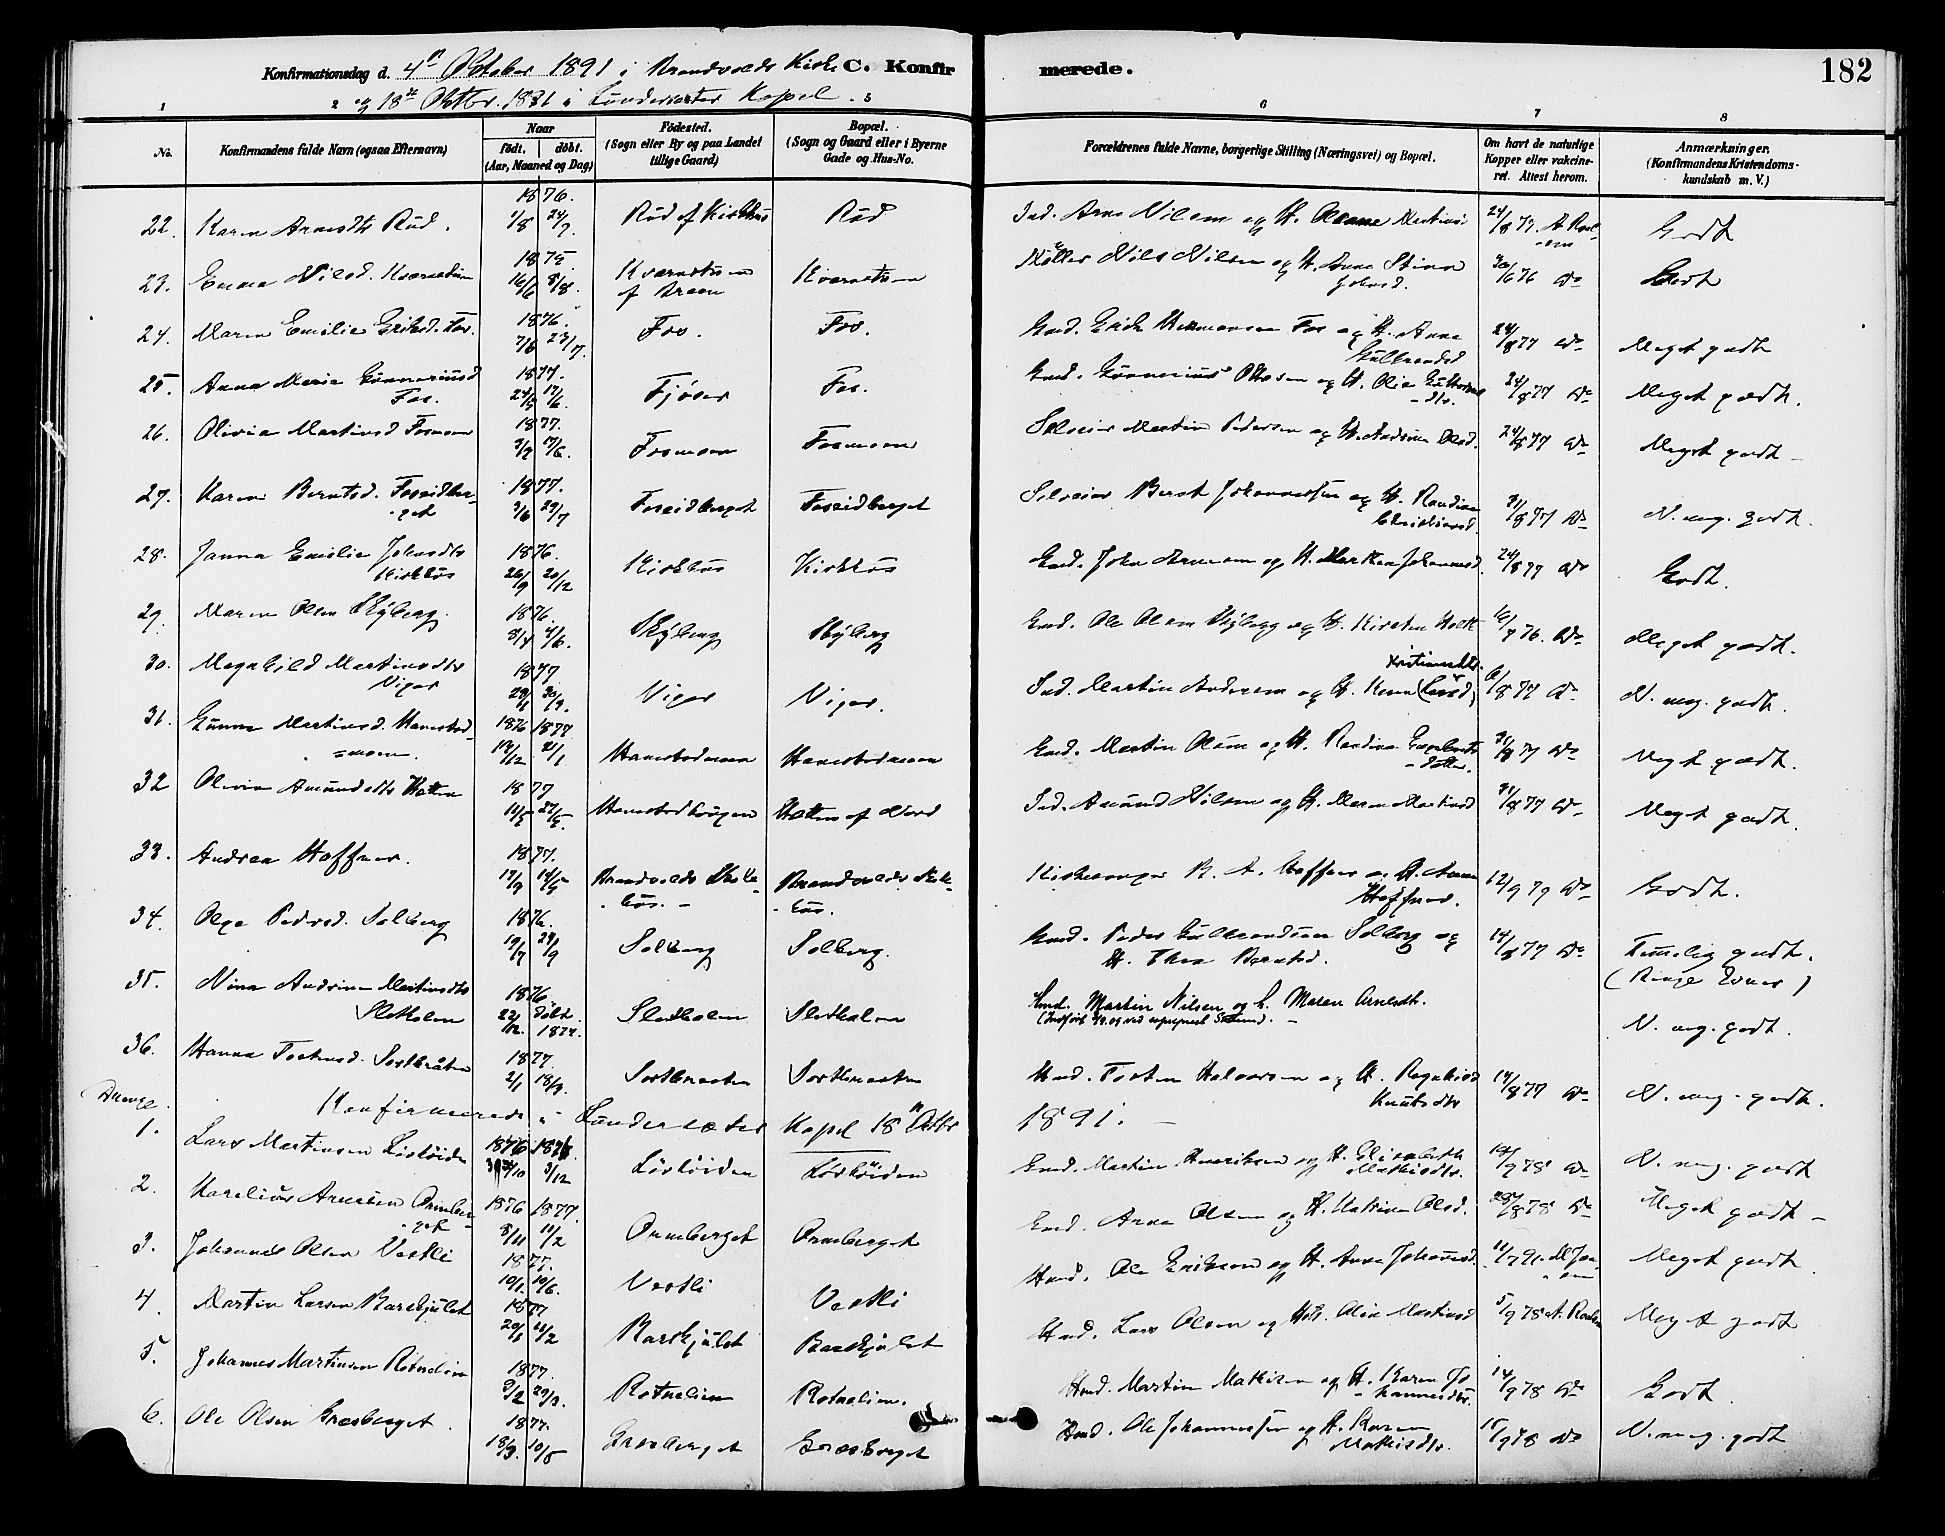 Konfirmationsdag d. 4de Oktober 1891 i Brandvolds Kirke C. Konfirmerede. 182
og 18de Oktbr. 1891 i Lundersæter Kapel.
1 2 3 6 7 8
No. Konfirmandens fulde Navn (ogsaa Efternavn) Naar født. døbt. (Aar, Maaned og Dag) Fødested. (Sogn eller By og paa Landet tillige Gaard) Bopæl. (Sogn og Gaard eller i Byerne Gade og Hus-No. Forældrenes fulde Navne, borgerlige Stilling (Næringsvei) og Bopæl. Om havt de naturlige Kopper eller vakcineret. Attest herom. Anmærkninger. (Konfirmandens Kristendomskundskab m. V.)
22. Karen Arnesdtr Rud. 1876. 1/8 24/9 Rud af Kirkhus Rud Ind. Arne Nilsen og H. Martinsd 24/8 77. Godt
23. Emma Nilsd. Kværnstuen 1875 16/6 8/8. Kværnstuen af Kværnstuen Møller Nils Nilsen og H. Anne Stina Johnsd. 30/6 76 Do Godt
24. Maren Emilie Eriksd. Fos. 1876. 7/6 23/7. Fos. Fos. Gmd. Erik Hermansen Fos og H. Anne Gulbrandsd 24/8 77 Do Meget godt
25. Anna Marie Gunneriusd Fos. 1877. 24/5 17/6. Fjøser Fos. Gmd. Gunnerius Olsen og H. Olia 24/8 77 Do Meget godt.
26. Olivia Martinsd Fosmoen 1877. Fosmoen Fosmoen Selveier Martin Pedersen og H. Andrine Olsd. 24/8 77 Do Meget godt
27. Karen Berntsd. Foseidberget 1877. 3/6 29/7 Foseidberget Foseidberget Selveier Bernt Johannessen og H. Randine Christiansd. 31/8 77 Do N. mg. godt.
28. Janna Emilie Johnsdtr Kirkhus 1876. 26/9 20/12 Kirkhus Kirkhus Gmd. John Arnesen og H. Marthea Johannesd. 24/8 77 Do Godt.
29. Maren Olsen Skyberg. 1876. 8/4 4/6. Skyberg Skyberg Gmd. Ole Olsen Skyberg og H. Kirsten Holt 76. Do Meget godt.
30. Magnhild Martinsdtr Viger 1877 Viger Viger. Ind. Martin Andersen og H. Karen (Larsd) Kristiansdtr. 8 77 Do N. mg. godt.
31. Gunna Martinsd. Hanestadmoen. 1876 1877 13/12 21/1 Hanestadmoen Hanestadmoen Gmd. Martin Olsen og H. Randine Engebretsdatter. 31/8 77 Do Meget godt.
32 Olivia Amundsdtr Hatten 1877 Hanestadhaugen Hatten af Nord Ind. Amund Nilsen og H. Maren Martinsd 31/8 77 Do Meget godt.
33. Andrea Hoffner. 1877. Brandvolds Skolehus. Brandvolds Skolehus. Kirkesanger R. A. Hoffner og H. Anna Hoffner. 12/9 79 Do Godt.
34. Olga Pedersd. Solberg 1876. 19/7 24/9 Solberg Solberg. Gmd. Peder Gulbrandsen Solberg og H. Thea Berntsd. 14/8 77 Do Temelig godt. (Ringe Evner)
35. Nina Andrine Martinsdtr Sletholen 1876. 22/12. døbt 1877. Sletholen Sletholen Smd. Martin Nilsen og H. Maren Arnesdtr. N. mg. godt.
36. Hanna Tostensd. Sortbråten 1877 2/1 18/3. Sortbraaten Sortbraaten Hmd. Tosten Halvorsen og H. Ragnhild Knutsdtr 14/8 77 Do N. mg. godt.
Drenge. Konfirmerede i Lundersæter Kapel 18de Oktbr 1891.
1. Lars Martinsen Løvhöiden 1876 1876. 3/12 Løvhöiden Løvhöiden Gmd. Martin Henriksen og H. Elisabeth Mathisdtr. 14/9 78 Do N. mg. godt
2. Karelius Arnesen Ormberget 1876 1877. 8/11 11/2 Ormberget Ormberget Gmd. Arne Olsen og H. Katrine Olsd. 28/8 78 Do Meget godt
3. Johannes Olsen Vestli 1877. 10/1. 10/6. Vestli Vestli Hmd. Ole Eriksen og H. Anne Johannesd. 11/7 91. Meget godt
4. Martin Larsen Barskjulet 1877 20/1 11/2 Barskjulet Barskjulet Hmd. Lars Olsen og H. Olia Martinsd 5/9 78 Meget godt
5. Johannes Martinsen Rotnelien 1877. 9/2 29/3. Rotnelien Rotnelien. Hmd. Martin Mathisen og H. Karen Johannesdtr. 14/9 78 Do Godt.
6. Ole Olsen Græsberget. 1877. 18/3. 10/5 Græsberget Græsberget Hmd. Ole Johannessen og H. Karen Mathisdtr. 15/9 78 Do N. mg. godt